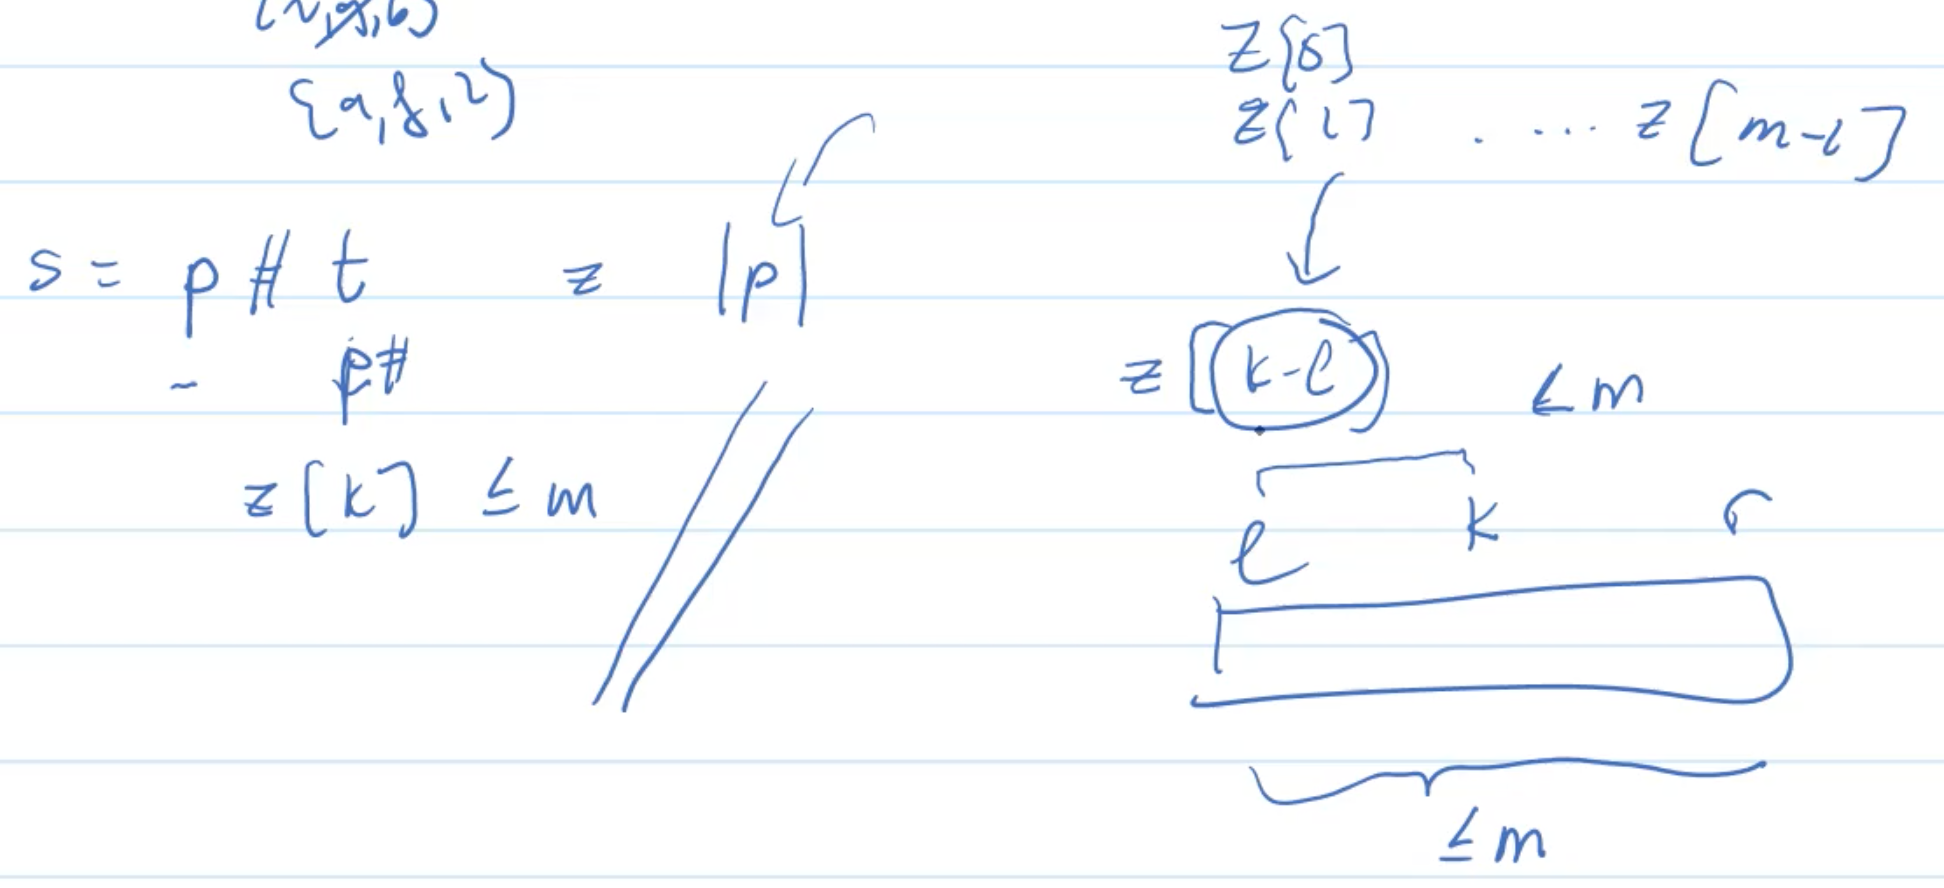 {a, f, 2}
s = p # t z |p|
p#
z[k] ≤ m
z[0]
z[1] . ... z[m-1]
z[k-l] ≤ m
l k r
≤ m